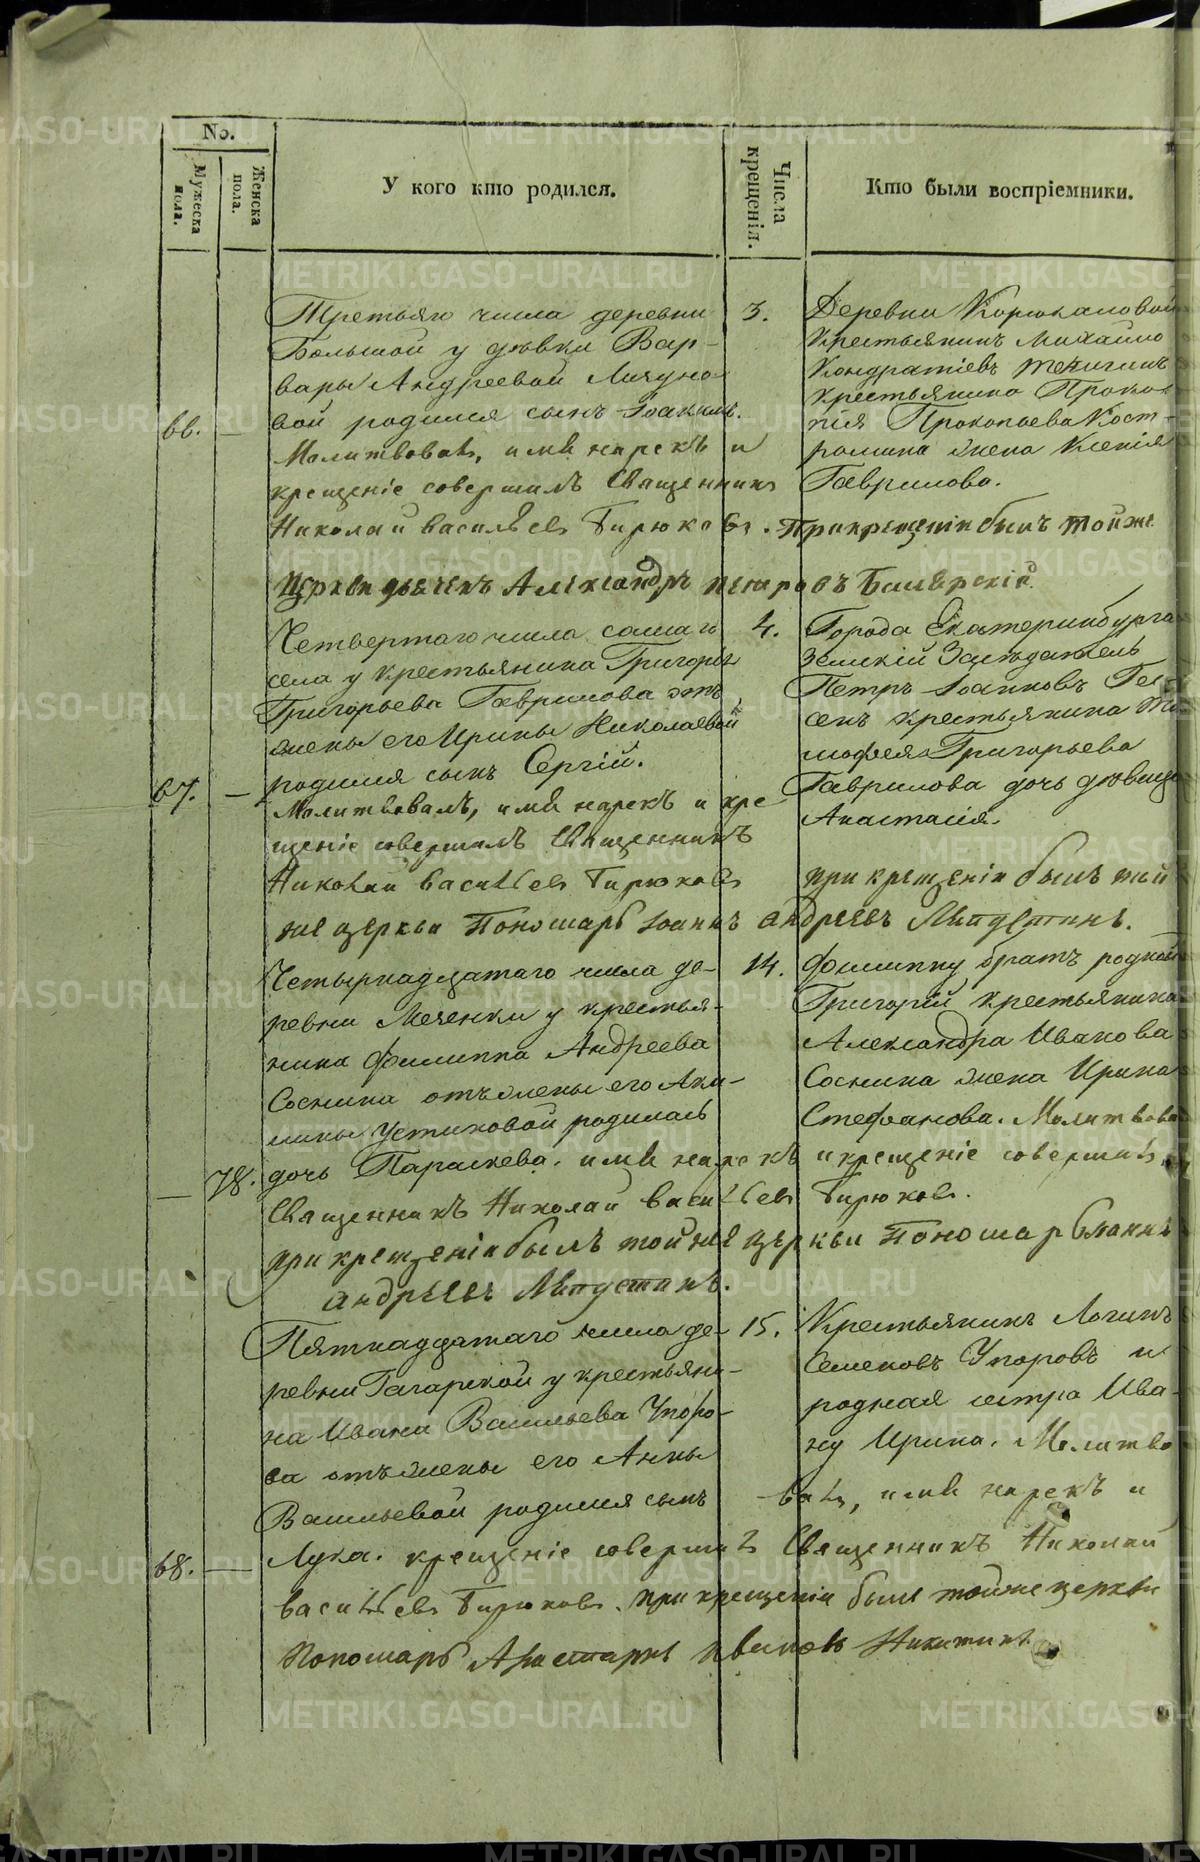 No.
Мужеска пола.
Женска пола.
У кого кто родился.
Числа крещенія.
Кто были воспріемники.
66. —
Третьяго числа деревни
Большой у дѣвки Вар-
вары Андреевой
вой родился сынъ Іоакимъ.
Молитвовалъ, имя нарекъ и
крещеніе совершилъ Священникъ
Николай Васильевъ Бирюковъ. При крещеніи былъ той же
Церкви дьячекъ Александръ Петровъ
3.
Деревни Корюкаловой
Крестьянинъ Михайло
Кондратіевъ
крестьянина Проко-
пія Прокопьева Кост-
ромина жена Ксенія
Гаврилова.
67. —
Четвертаго числа самаго
села у крестьянина Григорья
Григорьева Гаврилова отъ
жены его Ирины Николаевой
родился сынъ Сергій.
Молитвовалъ, имя нарекъ и кре
щеніе совершилъ Священникъ
Николай Васильевъ Бирюковъ при крещеніи былъ той
же церкви Пономарь Іоаннъ Андреевъ
4.
Города Екатеринбурга
Земскій Засѣдатель
Петръ Іоанновъ
сенъ крестьянина Ти
мофея Григорьева
Гаврилова дочь дѣвица
Анастасія.
— 78.
Четырнадцатаго числа де-
ревни Меченки у крестья-
нина Филиппа Андреева
Соснина отъ жены его Аки-
лины Устиновой родилась
дочь Параскева. имя нарекъ и крещеніе совершилъ
Священникъ Николай Васильевъ Бирюковъ.
при крещеніи былъ той же церкви Пономарь Іоаннъ
Андреевъ
14.
Филиппу братъ родной
Григорій крестьянина
Александра Иванова
Соснина жена Ирина
Стефанова. Молитвова
68. —
Пятнадцатаго числа де-
ревни Гагарской у крестьяни-
на Ивана Васильева Упоро-
ва отъ жены его Анны
Васильевой родился сынъ
Лука. крещеніе совершилъ Священникъ Николай
Васильевъ Бирюковъ. при крещеніи былъ той же церкви
Пономарь Ивановъ Никитинъ
15.
Крестьянинъ Логинъ
Семеновъ Упоровъ и
родная сестра Ива-
ну Ирина. Молитво
валъ, имя нарекъ и
METRIKI.GASO-URAL.RU